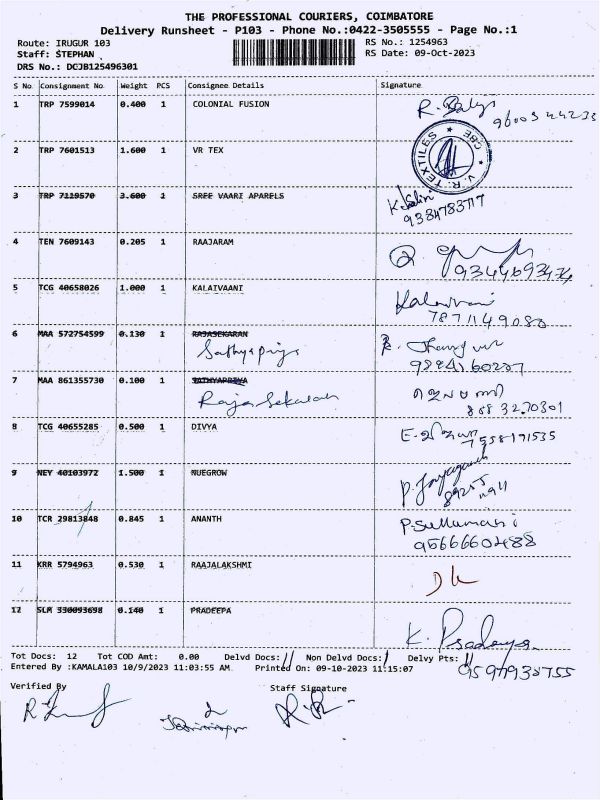 THE PROFESSIONAL COURIERS, COIMBATORE
Delivery Runsheet - P103 - Phone No.:0422-3505555 - Page No.:1
Route: IRUGUR 103 RS No.: 1254963
Staff: STEPHAN RS Date: 09-Oct-2023
DRS No.: DCJB125496301
S No Consignment No Weight PCS Consignee Details Signature
1 TRP 7599014 0.400 1 COLONIAL FUSION
2 TRP 7601513 1.600 1 VR TEX V.R. TEXTILES CBE
3 TRP 7129570 3.600 1 SREE VAARI APARELS
9384783717
4 TEN 7609143 0.205 1 RAAJARAM
5 TCG 40658026 1.000 1 KALAIVAANI Kalaivani
7871149080
6 MAA 572754599 0.130 1 RAJASEKARAN
Sathyapriya
7 MAA 861355730 0.100 1 SATHYAPRIYA
Raja Sekaran
8 TCG 40655285 0.500 1 DIVYA
7558191535
9 NEY 40103972 1.500 1 NUEGROW
10 TCR 29813848 0.845 1 ANANTH
9566660488
11 KRR 5794963 0.530 1 RAAJALAKSHMI
12 SLM 330093698 0.140 1 PRADEEPA K. Pradeepa
Tot Docs: 12 Tot COD Amt: 0.00 Delvd Docs: 11 Non Delvd Docs: 1 Delvy Pts: 11
Entered By :KAMALA103 10/9/2023 11:03:55 AM Printed On: 09-10-2023 11:15:07
Verified By Staff Signature